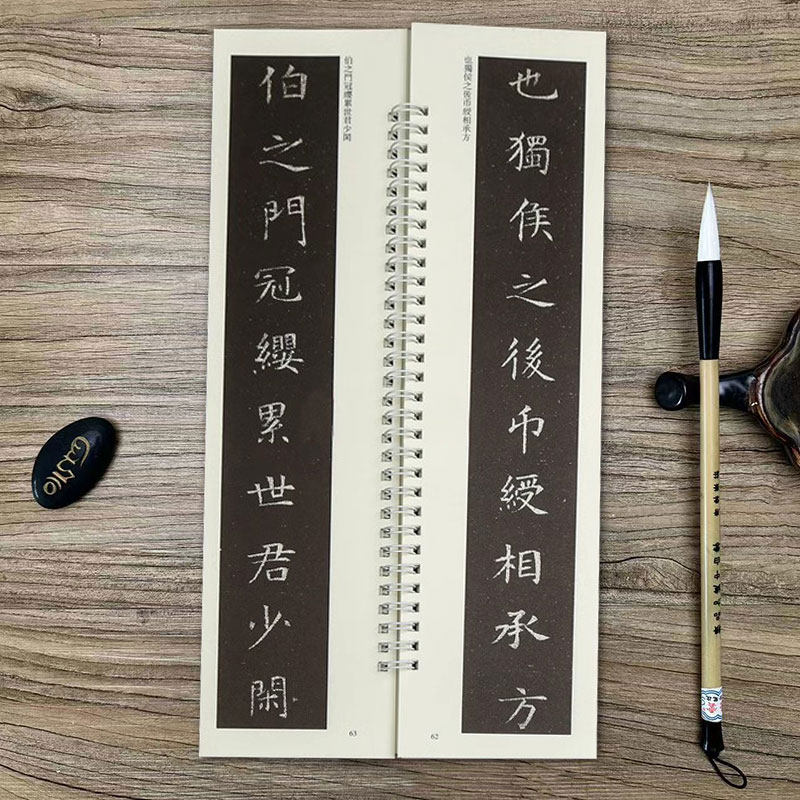 也獨侯之後币綬相承方
也獨侯之後币綬相承方
62
伯之門冠纓累世君少閑
伯之門冠纓累世君少閑
63